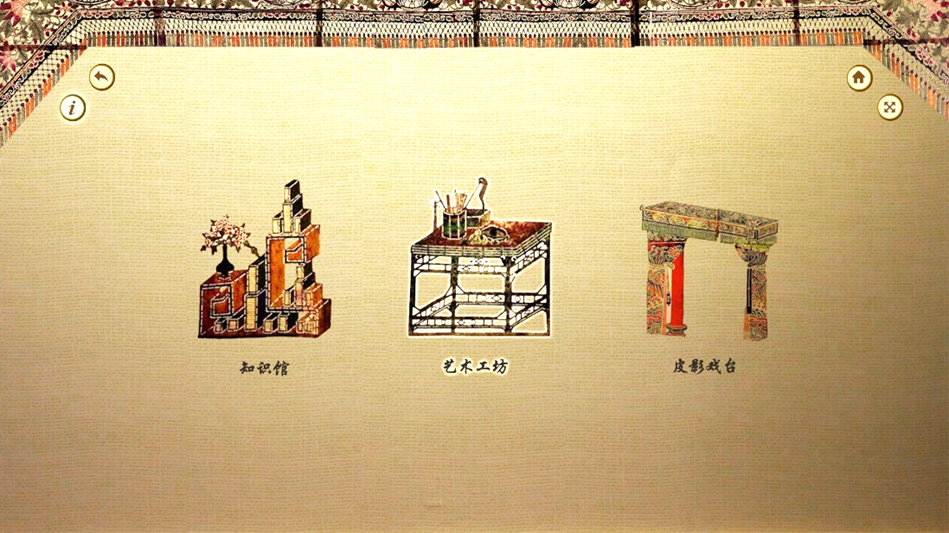 i
知识馆
艺术工坊
皮影戏台